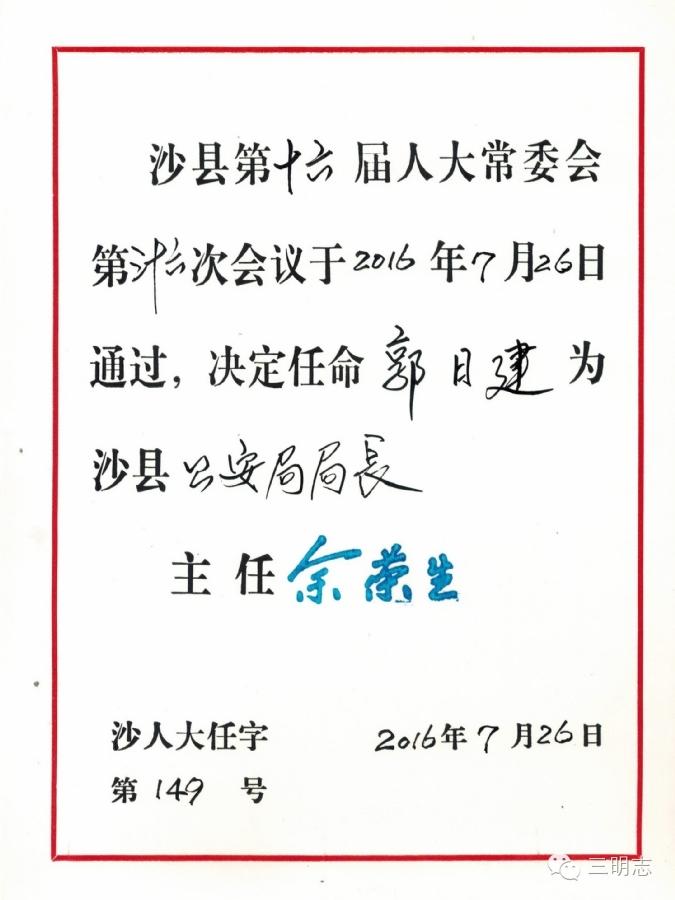 沙县第十六届人大常委会
第卅六次会议于2016年7月26日
通过，决定任命郭日建为
沙县公安局局長
主任余荣生
沙人大任字 2016年7月26日
第149号
三明志